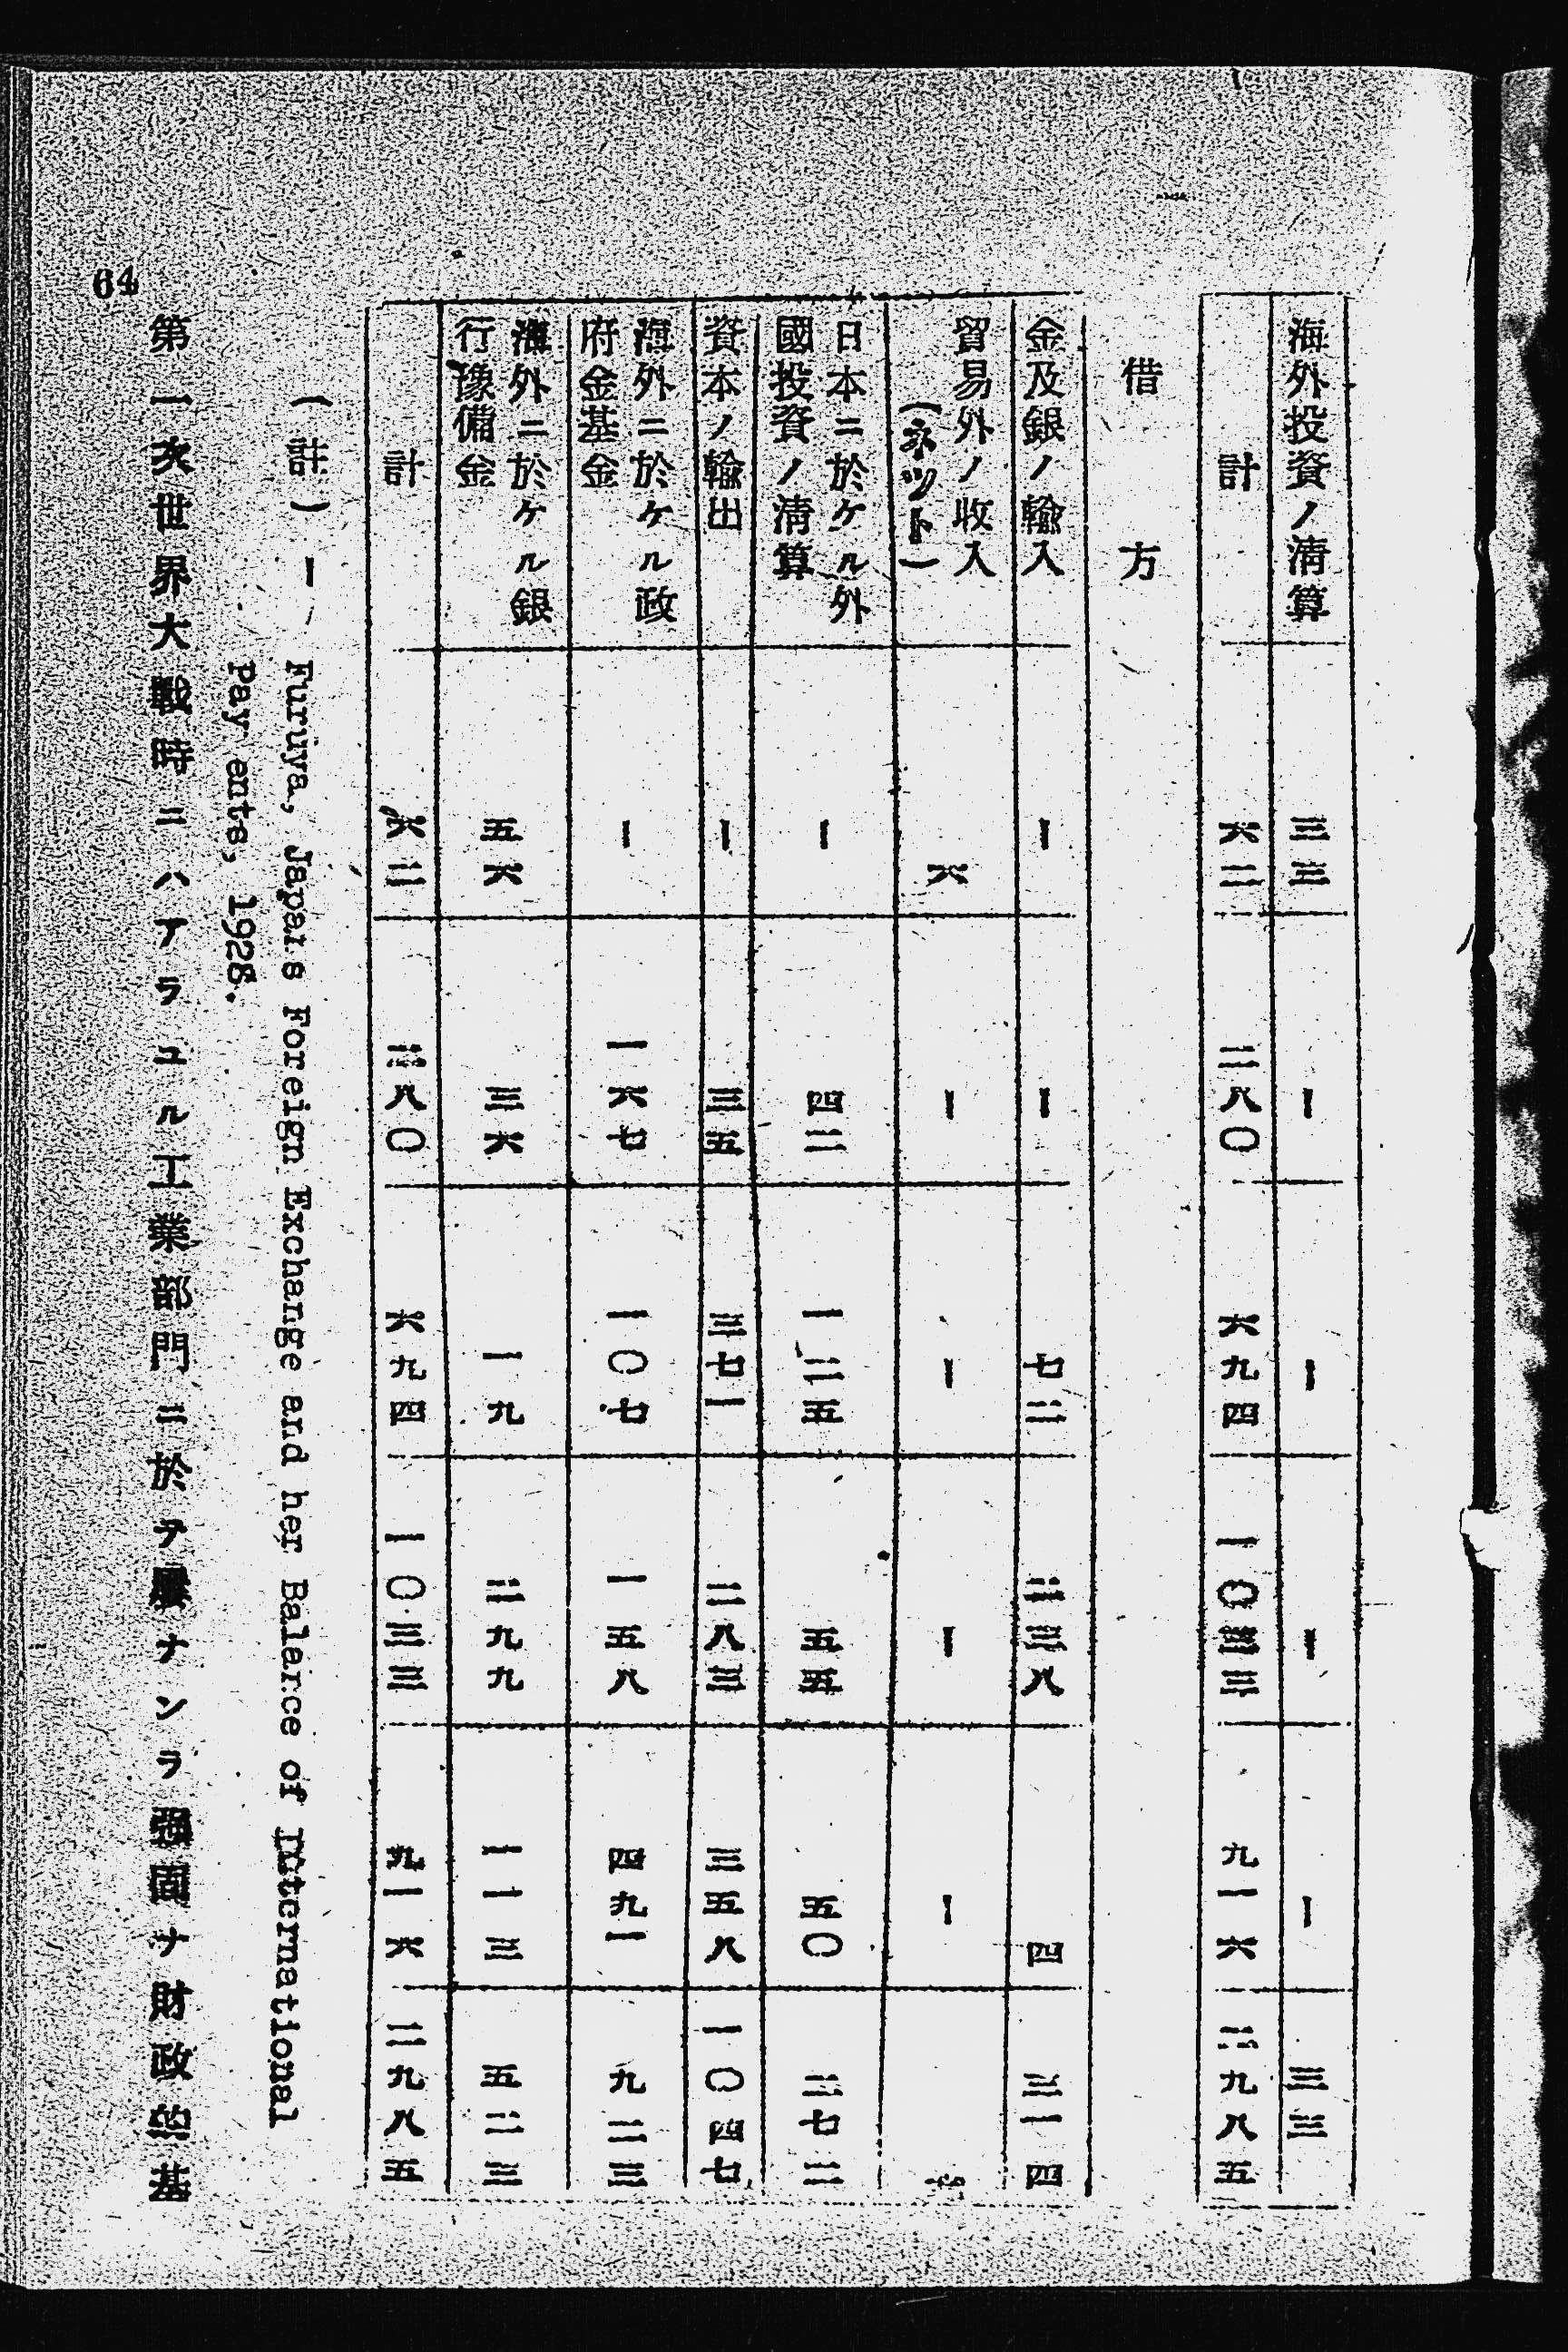 海外投資ノ淸算 三三 ー ー ー ー 三三
計 六二 二八〇 六九四 一〇三三 九一六 二九八五
借方
金及銀ノ輸入 ー ー 七二 二三八 四 三一四
貿易外ノ收入
(ネツト) 六 ー ー ー ー
日本ニ於ケル外
國投資ノ淸算 ー 四二 一二五 五五 五〇 二七二
資本ノ輸出 ー 三五 三七一 二八三 三五八 一〇四七
海外ニ於ケル政
府金基金 ー 一六七 一〇七 一五八 四九一 九二三
海外ニ於ケル銀
行豫備金 五六 三六 一九 二九九 一一三 五二三
計 六二 二八〇 六九四 一〇三三 九一六 二九八五
(註)ー Furuya, Japans Foreign Exchange and her Balance of International
Pay ents, 1928.
第一次世界大戰時ニハアラユル工業部門ニ於テ屢ナンラ强固ナ財政的基
64